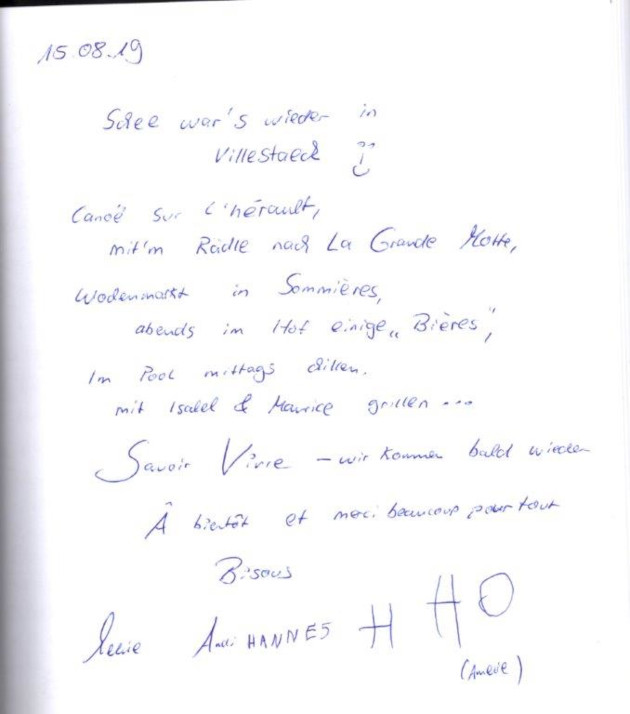 15.08.19
Schee war's wieder in
Villestaeck
Canoë sur L'hérault,
mit'm Rädle nach La Grande Motte,
Wochenmarkt in Sommières,
abends im Hof einige „Bières",
Im Pool mittags chillen.
mit Isabel & Maurice grillen ...
Savoir Vivre – wir kommen bald wieder
Â bientôt et merci beaucoup pour tout
Bisous
Andi HANNES H HO
(Amelie)